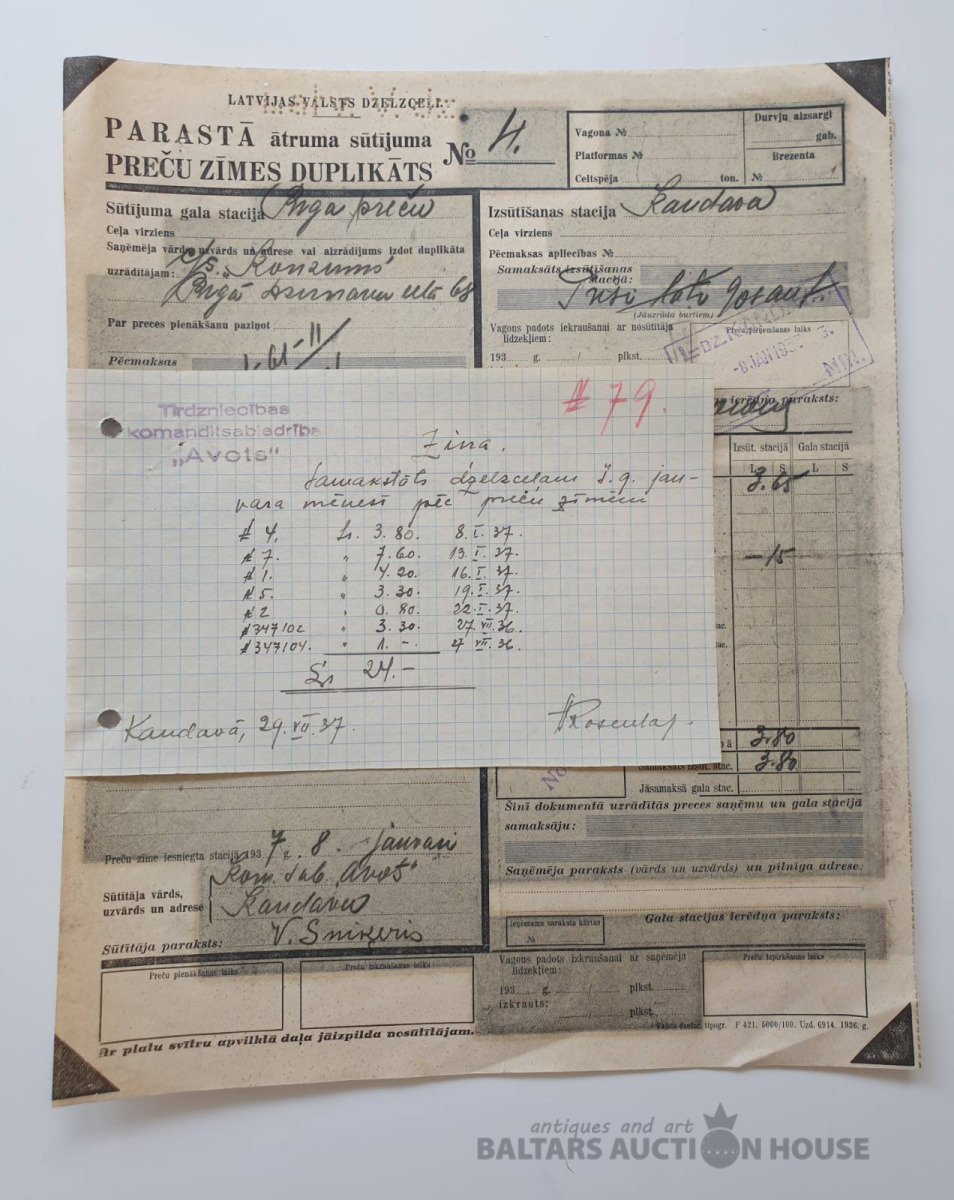 LATVIJAS VALSTS DZELZCEĻI.
PARASTĀ ātruma sūtījuma
PREČU ZĪMES DUPLIKĀTS
№ 4.
Vagona №
Platformas №
Celtspēja ton.
Durvju aizsargi
gab.
Brezenta
№
Sūtījuma gala stacija Rīga preču
Ceļa virziens
Saņēmēja vārds, uzvārds un adrese vai aizrādījums izdot duplikāta
uzrādītājam: "Konzums"
Rīgā 68
Par preces pienākšanu paziņot
Pēcmaksas
Izsūtīšanas stacija Kandava
Ceļa virziens
Pēcmaksas apliecības №
Samaksāts izsūtīšanas
stacijā:
Trīs lati
(Jāuzrāda burtiem)
Vagons padots iekraušanai ar nosūtītāja
līdzekļiem:
193 g. / plkst.
Preču pieņemšanas laiks
-8 JAN 193
MIN.
ierēdņa paraksts:
Izsūt. stacijā Gala stacijā
L S L S
3.65
-15
3.80
Samaksāts izsūt. stac. 3.80
Jāsamaksā gala stac.
Tirdzniecības
komanditsabiedrība
„Avots"
# 79.
Ziņa.
Samaksāts dzelzceļam š.g. jan-
vara mēnesī pēc preču zīmēm
# 4. Ls. 3.80. 8.I.37.
# 7. " 7.60. 13.I.37.
# 1. " 4.20. 16.I.37.
# 5. " 3.30. 19.I.37.
# 2 " 0.80. 22.I.37.
# 347102 " 3.30. 27.VII.36.
# 347104. " 1.-. 27.VII.36.
Ls 24.-
Kandavā, 29.VII.37.
No
Šinī dokumentā uzrādītās preces saņēmu un gala stacijā
samaksāju:
Saņēmēja paraksts (vārds un uzvārds) un pilnīga adrese:
Preču zīme iesniegta stacijā 1937 g. 8. janvarī
Sūtītāja vārds,
uzvārds un adrese
Kom. sab. "Avots"
Kandavā
Sūtītāja paraksts: V. Smiķeris
Ieņēmumu saraksta kārtas
№
Gala stacijas ierēdņa paraksts:
Preču pienākšanas laiks
Preču izkraušanas laiks
Vagons padots izkraušanai ar saņēmēja
līdzekļiem:
193 g. / plkst.
izkrauts:
/ plkst.
Preču izpirkšanas laiks
Ar platu svītru apvilktā daļa jāizpilda nosūtītājam.
Valsts dzelzc. tipogr. F 421. 5000/100. Uzd. 6914. 1936. g.
antiques and art
BALTARS AUCTION HOUSE